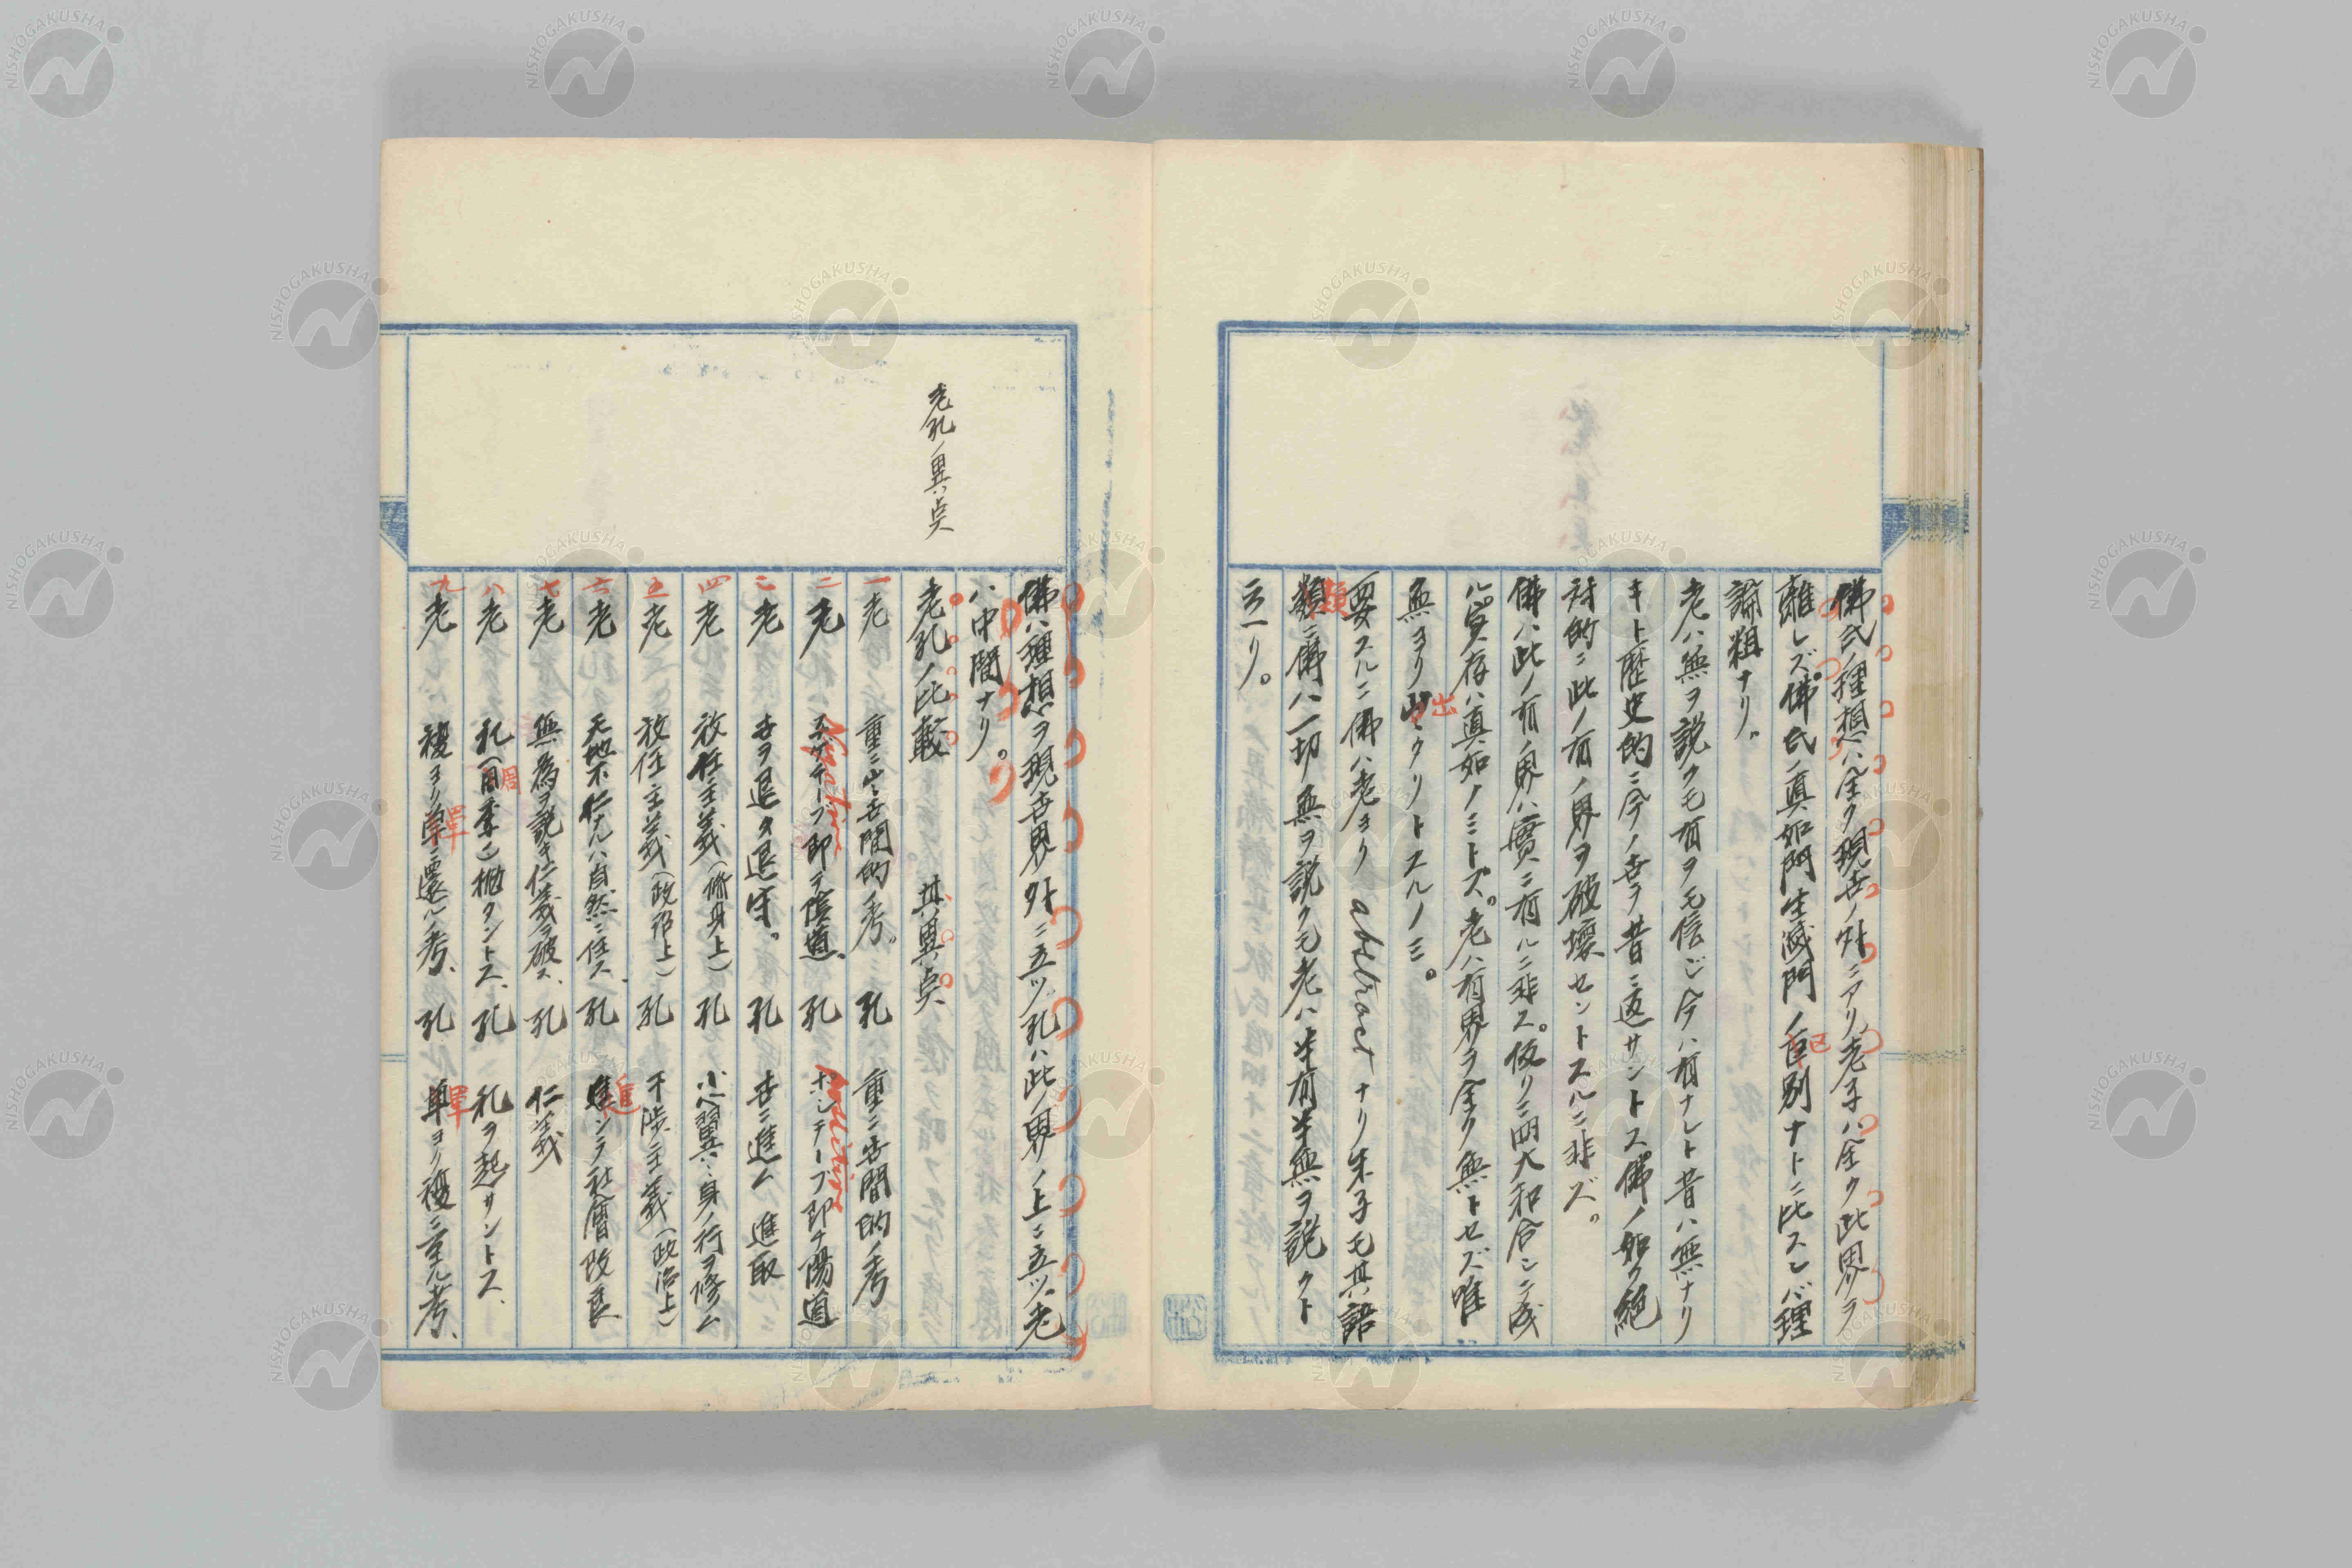 佛氏ノ理想ハ全ク現世ノ外ニアリ老子ハ全ク此界ヲ
離レズ佛氏ノ真如門生滅門ノ区別ナトニ比スレバ理
論粗ナリ。
老ハ無ヲ説クモ有ヲモ信ジ今ハ有ナレト昔ハ無ナリ
キト歴史的ニ今ノ世ヲ昔ニ返サントス佛ノ如ク絶
対的ニ此ノ有ノ界ヲ破壊セントスルニ非ズ。
佛ハ此ノ有ノ界ハ實ニ有ルニ非ス。仮リニ四大和合シテ成
ル實存ハ真如ノミトズ。老ハ有界ヲ全ク無トセズ唯
無ヨリ出テクリトスルノミ。
要スルニ佛ハ老ヨリ abstract ナリ朱子モ其語
類ニ佛ハ一切ノ無ヲ説クモ老ハ半有半無ヲ説クト
云ヘリ。
老孔ノ異点
佛ハ理想ヲ現世界外ニ立ツ孔ハ此ノ界ノ上ニ立ツ。老
ハ中間ナリ。
老孔ノ比較 其異点
一 老 重ニ出世間的ノ考。 孔 重ニ世間的ノ考
二 老 ネガチーブ即ヲ陰道。 孔 ポシチーブ即チ陽道
Negative
positive
三 老 世ヲ退ク退守。 孔 世ニ進ム 進取
四 老 放任主義（修身上） 孔 小心翼々身ノ行ヲ修ム
五 老 放任主義（政治上） 孔 干渉主義（政治上）
六 老 天地不仁ナルハ自然ニ任ス、 孔 進ンテ社會改良
七 老 無為ヲ説キ仁義ヲ破ス、 孔 仁義
八 老 礼（周季ノ）擲タントス、 孔 礼ヲ起サントス、
九 老 複ヨリ單ニ還ル考、 孔 單ヨリ複ニ至ル考、
NISHOGAKUSHA